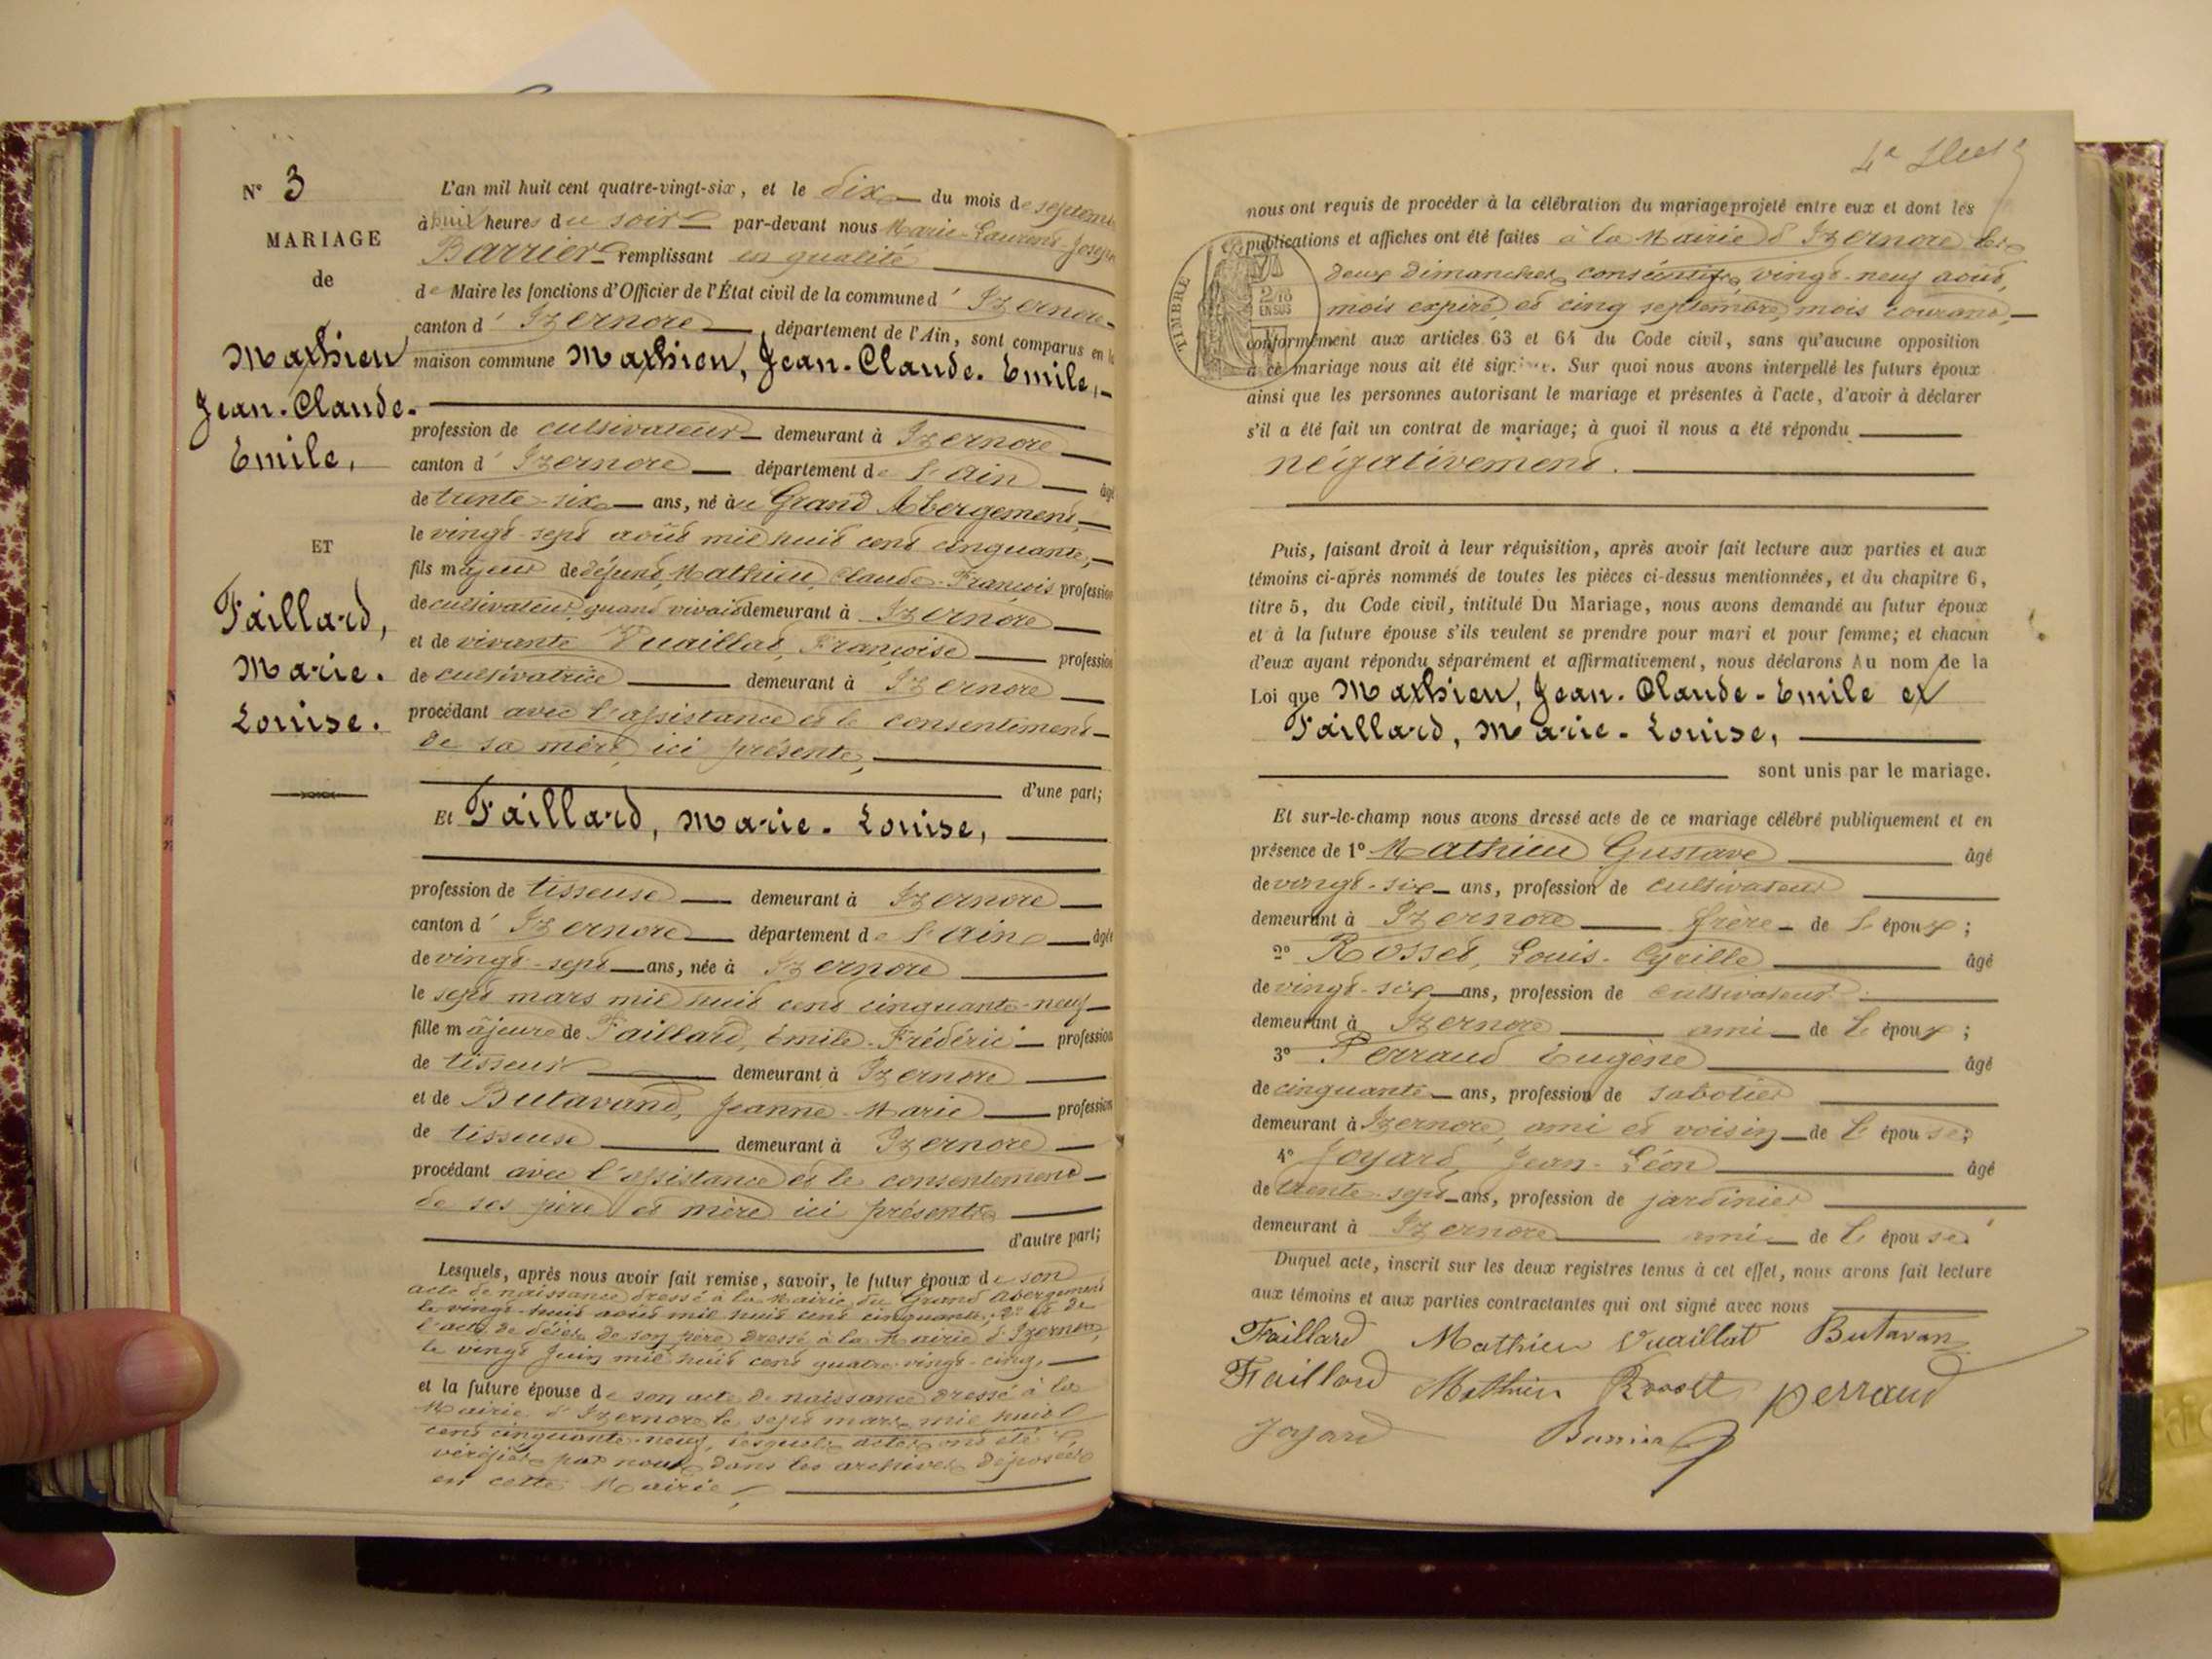 N° 3
MARIAGE
de
Mathieu
Jean-Claude-
Emile,
ET
Faillard,
Marie-
Louise.
L'an mil huit cent quatre-vingt-six, et le dix du mois de septem
à huit heures du soir par-devant nous Marie-Laurent-Joseph
Barrier remplissant en qualité
de Maire les fonctions d'Officier de l'État civil de la commune d'Izernore
canton d'Izernore, département de l'Ain, sont comparus en la
maison commune Mathieu, Jean-Claude-Emile,
profession de cultivateur demeurant à Izernore
canton d'Izernore département de l'Ain âgé
de trente-six ans, né au Grand Abergement,
le vingt-sept août mil huit cent cinquante,
fils majeur de défunt Mathieu, Claude-François profession
de cultivateur quand vivait demeurant à Izernore
et de vivante Vuaillat, Françoise profession
de cultivatrice demeurant à Izernore
procédant avec l'assistance et le consentement
de sa mère, ici présente,
d'une part;
Et Faillard, Marie-Louise,
profession de tisseuse demeurant à Izernore
canton d'Izernore département de l'Ain âgée
de vingt-sept ans, née à Izernore
le sept mars mil huit cent cinquante-neuf
fille majeure de Faillard, Emile-Frédéric profession
de tisseur demeurant à Izernore
et de Butavand, Jeanne-Marie profession
de tisseuse demeurant à Izernore
procédant avec l'assistance et le consentement
de ses père et mère ici présents
d'autre part;
Lesquels, après nous avoir fait remise, savoir, le futur époux de son
acte de naissance dressé à la Mairie du Grand Abergement
le vingt-huit août mil huit cent cinquante, 2° et de
l'acte de décès de son père dressé à la Mairie d'Izernore,
le vingt Juin mil huit cent quatre-vingt-cinq,
et la future épouse de son acte de naissance dressé à la
Mairie d'Izernore le sept mars mil huit
cent cinquante-neuf, lesquels actes ont été
vérifiés par nous dans les archives déposées
en cette Mairie,
nous ont requis de procéder à la célébration du mariage projeté entre eux et dont les
publications et affiches ont été faites à la Mairie d'Izernore les
deux dimanches consécutifs, vingt-neuf août,
mois expiré, et cinq septembre, mois courant,
TIMBRE
2/10
EN SUS
conformément aux articles 63 et 64 du Code civil, sans qu'aucune opposition
à ce mariage nous ait été signifiée. Sur quoi nous avons interpellé les futurs époux
ainsi que les personnes autorisant le mariage et présentes à l'acte, d'avoir à déclarer
s'il a été fait un contrat de mariage; à quoi il nous a été répondu
négativement.
Puis, faisant droit à leur réquisition, après avoir fait lecture aux parties et aux
témoins ci-après nommés de toutes les pièces ci-dessus mentionnées, et du chapitre 6,
titre 5, du Code civil, intitulé Du Mariage, nous avons demandé au futur époux
et à la future épouse s'ils veulent se prendre pour mari et pour femme; et chacun
d'eux ayant répondu séparément et affirmativement, nous déclarons Au nom de la
Loi que Mathieu, Jean-Claude-Emile et
Faillard, Marie-Louise,
sont unis par le mariage.
Et sur-le-champ nous avons dressé acte de ce mariage célébré publiquement et en
présence de 1° Mathieu Gustave âgé
de vingt-six ans, profession de cultivateur
demeurant à Izernore frère de l'époux;
2° Rosset, Louis-Cyrille âgé
de vingt-six ans, profession de cultivateur
demeurant à Izernore ami de l'époux;
3° Perraud Eugène âgé
de cinquante ans, profession de sabotier
demeurant à Izernore, ami et voisin de l'épouse;
4° Joyard, Jean-Léon âgé
de trente-sept ans, profession de jardinier
demeurant à Izernore ami de l'épouse.
Duquel acte, inscrit sur les deux registres tenus à cet effet, nous avons fait lecture
aux témoins et aux parties contractantes qui ont signé avec nous
Faillard Mathieu Vuaillat Butavan
Faillard Mathieu Rosset perraud
Joyard Barrier